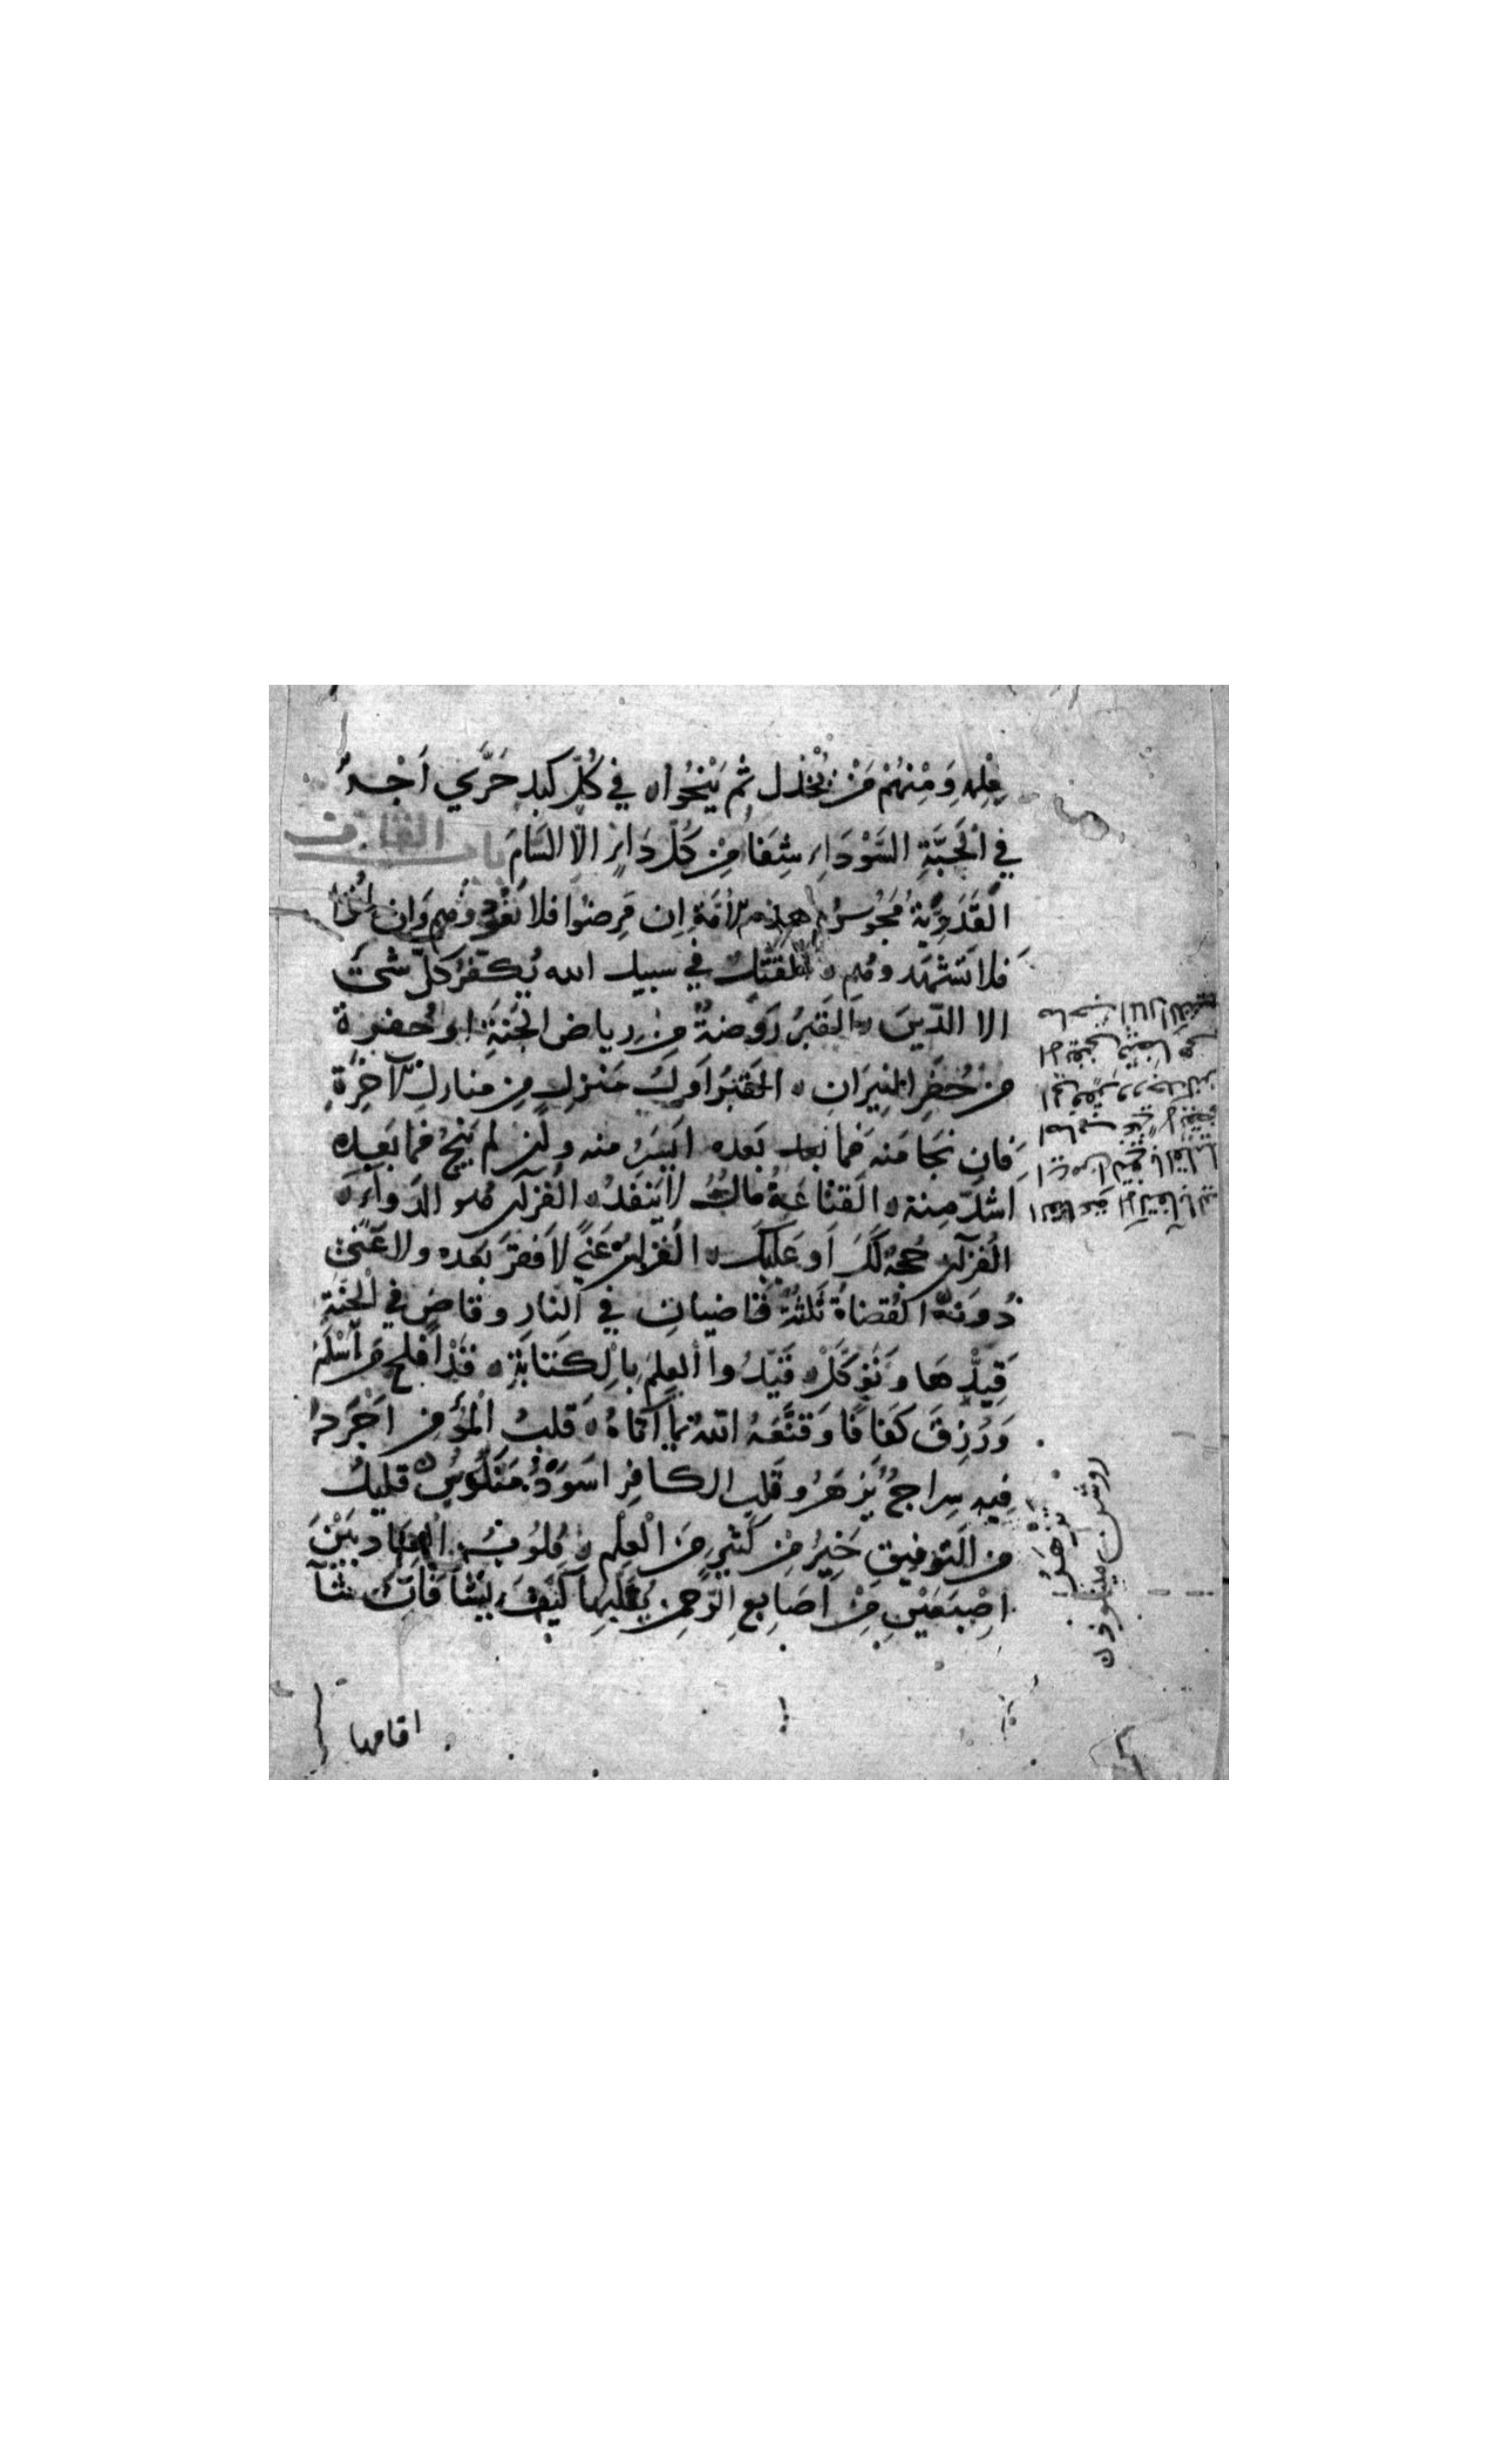 عمله ومنهم مَنْ يُخْذَل ثم يَنْجُوا ه في كُلِّ كبدٍ حَرَّي اَجْرٌ
في الْحَبَّةِ السَّوْدَاءِ شِفَا مِنْ كُلِّ دَاءٍ الّا السَّامَ باب القاف
الْقَدَرِيَّةُ مَجُوسُ هذه الاُمَّةِ اِن مَرِضُوا فلا تَعُودُوهم وَاِن مَاتُوا
فلا تَشْهَدوهُم ه الْقَتْلُ في سبيل الله يُكَفِّرُ كلَّ شيْ
الا الدَّينَ ه اَلقَبْرُ رَوْضةٌ من رياض الجَنَةِ او حُفرة
من حُفَرِ النِيرَانِ ه القَبْرُ اَوّلُ مَنْزِلٍ مِن منازِلِ الآخِرَةِ
فَاِن نَجَا مَنه فما بعد بَعده اَيْسَرُ منه ولَئن لم يَنجُ فما بَعده
اشَدُّ مِنهُ ه القَنَاعَةُ مالٌ لا يَنْفَدُ ه القُرآن هُو الدَواء ه
القُرآن حُجةٌ لَكَ اَو عَلَيكَ ه القُرآنُ غَنِيً لا فَقرَ بَعده ولا غَنيً
دُونَهُ القُضاةُ ثَلثَةٌ قَاضِيانِ في النارِ وقاضٍ في الجَنَةِ
قَيِّدْها وتَوَكَلْ ه قَيّدُوا العِلمَ بالكِتَابَةِ ه قَدْ اَفلحَ مَن اَسْلَمَ
وَرُزِقَ كَفافًا وَقَنَّعَهُ اللهُ بما آتاهُ ه قَلبُ المُؤمِن اَجْرَدُ
فيه سِراجٌ يَزهَرُ وقَلب الكافِرِ اَسَودُ مَنكُوسٌ ه قليلٌ
من التَوفيق خَيرٌ مِن كَثيرٍ مِنَ العِلْمِ ه قُلوبُ العِبادِ بَيْنَ
اِصْبَعَيْنِ مِنْ اَصَابِعِ الرَّحمن يُقَلِّبها كَيْفَ يَشا فَاِنْ شآ
اقامها